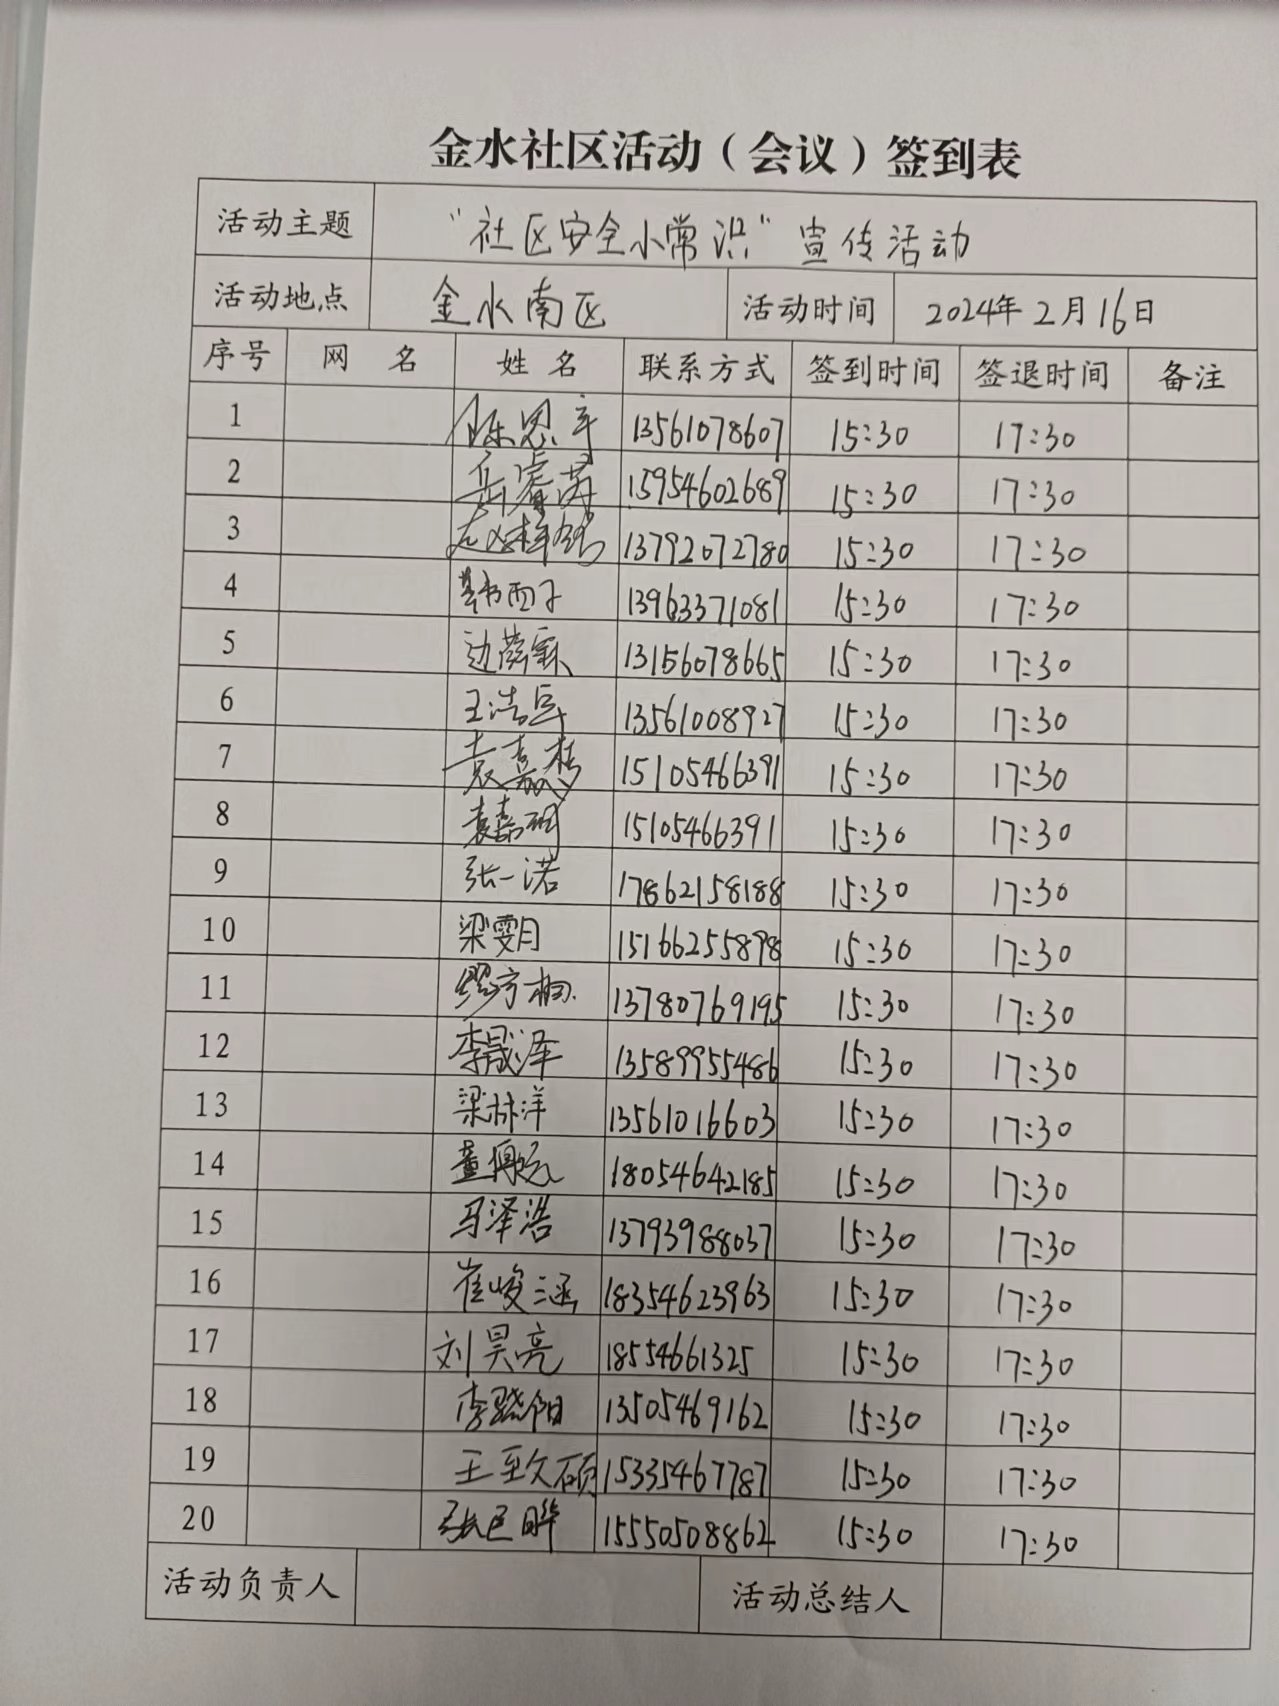 金水社区活动（会议）签到表
活动主题 “社区安全小常识”宣传活动
活动地点 金水南区 活动时间 2024年2月16日
序号 网 名 姓 名 联系方式 签到时间 签退时间 备注
1 13561078607 15:30 17:30
2 15954602689 15:30 17:30
3 13792072780 15:30 17:30
4 韩西子 13963371081 15:30 17:30
5 13156078665 15:30 17:30
6 王浩 13561008927 15:30 17:30
7 袁嘉 15105466391 15:30 17:30
8 袁嘉 15105466391 15:30 17:30
9 张一诺 17862158188 15:30 17:30
10 梁雯月 15166255898 15:30 17:30
11 13780769195 15:30 17:30
12 李晟泽 13589955486 15:30 17:30
13 梁林洋 13561016603 15:30 17:30
14 董 18054642185 15:30 17:30
15 马泽浩 13793988037 15:30 17:30
16 崔峻涵 18354623963 15:30 17:30
17 刘昊亮 18554661325 15:30 17:30
18 李骁阳 13505469162 15:30 17:30
19 王至久硕 15335467787 15:30 17:30
20 张 15550508862 15:30 17:30
活动负责人 活动总结人